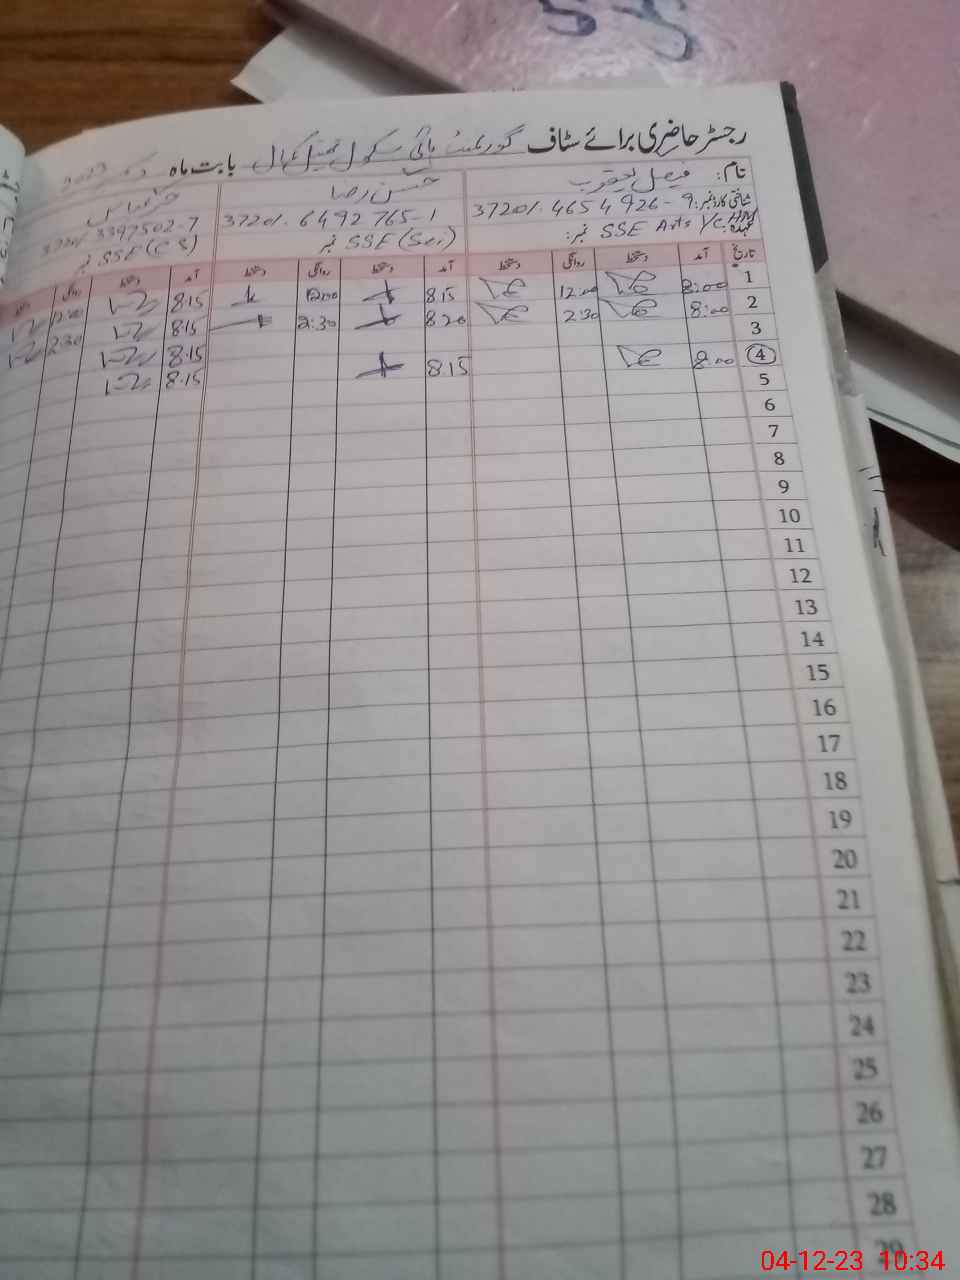 رجسٹر حاضری برائے سٹاف گورنمنٹ ہائی سکول بابت ماہ دسمبر 2023
نام: فیصل یعقوب
شناختی کارڈ نمبر: 37201-4654926-9
عہدہ: SSE Arts I/C HM نمبر:
حسن رضا
37201-6492765-1
SSE (Sci) نمبر
37201-3397502-7
SSE (CS) نمبر
تاریخ آمد دستخط روانگی دستخط آمد دستخط روانگی دستخط آمد دستخط روانگی
1 8:00 12:00 8:15 12:00 8:15 12:00
2 8:00 2:30 8:20 2:30 8:15 2:30
3 8:15
4 8:00 8:15 8:15
5
6
7
8
9
10
11
12
13
14
15
16
17
18
19
20
21
22
23
24
25
26
27
28
29
04-12-23 10:34